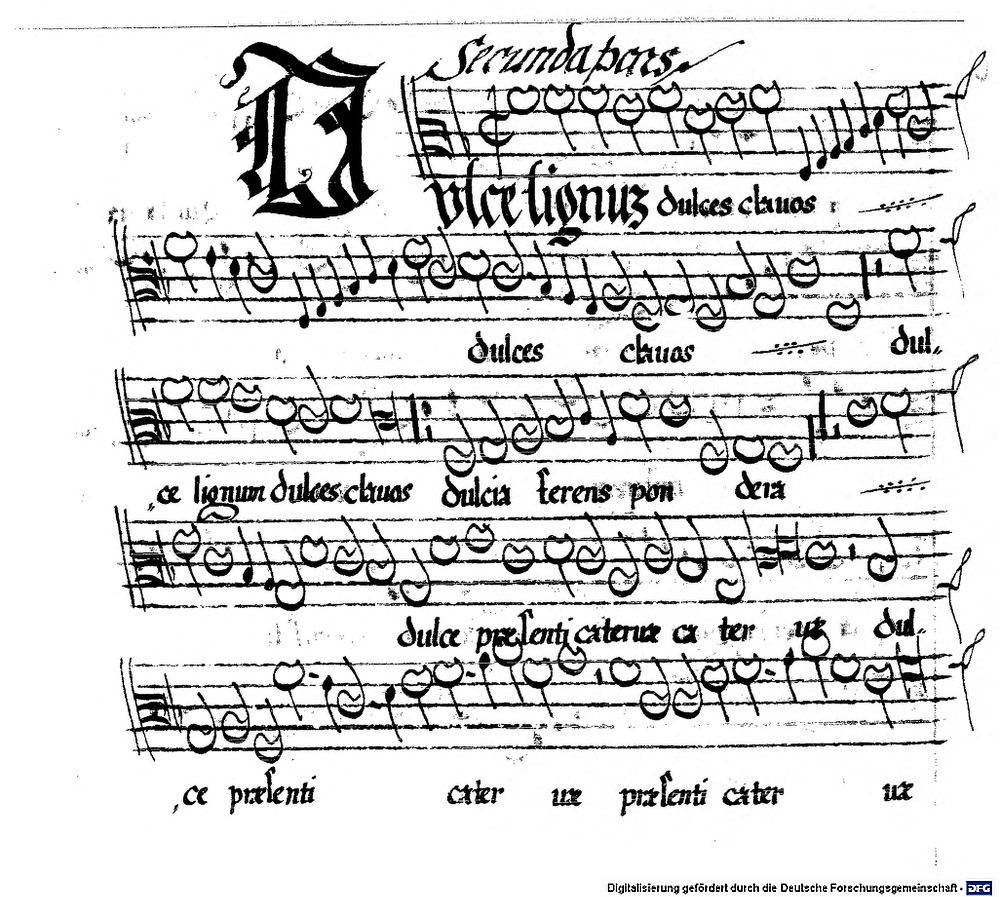 Secunda pars.
Dulce lignuʒ dulces clauos
dulces clauos dul„
„ce lignum dulces clauos dulcia ferens pon dera
dulce præsenti cateruæ ca ter uæ dul„
„ce præsenti cater uæ præsenti cater uæ
Digitalisierung gefördert durch die Deutsche Forschungsgemeinschaft - DFG